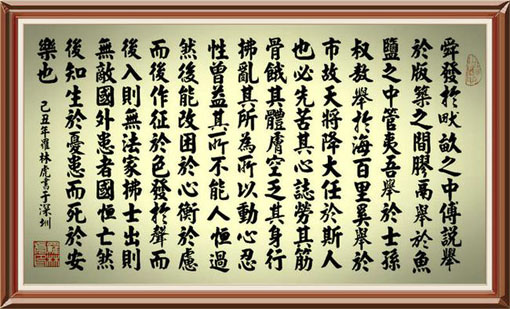 舜發於畎畝之中傅說舉
於版築之間膠鬲舉於魚
鹽之中管夷吾舉於士孫
叔敖舉於海百里奚舉於
市故天將降大任於斯人
也必先苦其心誌勞其筋
骨餓其體膚空乏其身行
拂亂其所為所以動心忍
性曾益其所不能人恒過
然後能改困於心衡於慮
而後作征於色發於聲而
後入則無法家拂士出則
無敵國外患者國恒亡然
後知生於憂患而死於安
樂也
己丑年崔林虎書于深圳